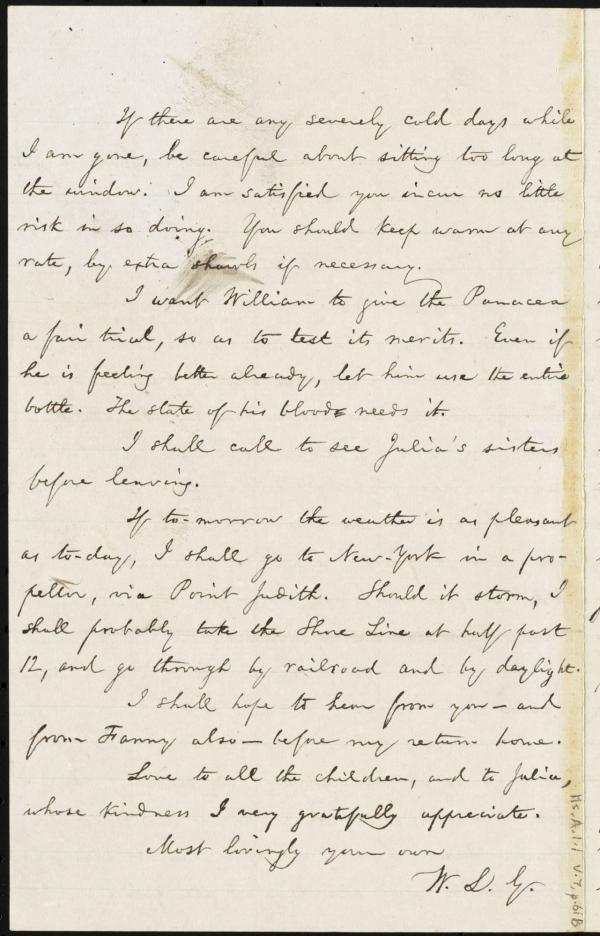 If there are any severely cold days while
I am gone, be careful about sitting too long at
the window. I am satisfied you incur no little
risk in so doing. You should keep warm at any
rate, by extra shawls if necessary.
I want William to give the Panacea
a fair trial, so as to test its merits. Even if
he is feeling better already, let him use the entire
bottle. The state of his blood needs it.
I shall call to see Julia's sisters
before leaving.
If to-morrow the weather is as pleasant
as to-day, I shall go to New-York in a pro-
pellor, via Point Judith. Should it storm, I
shall probably take the Shore Line at half past
12, and go through by railroad and by daylight.
I shall hope to hear from you — and
from Fanny also — before my return home.
Love to all the children, and to Julia,
whose kindness I very gratefully appreciate.
Most lovingly your own
W. L. G.
Ms. A. 1. 1 v. 7, p. 61B